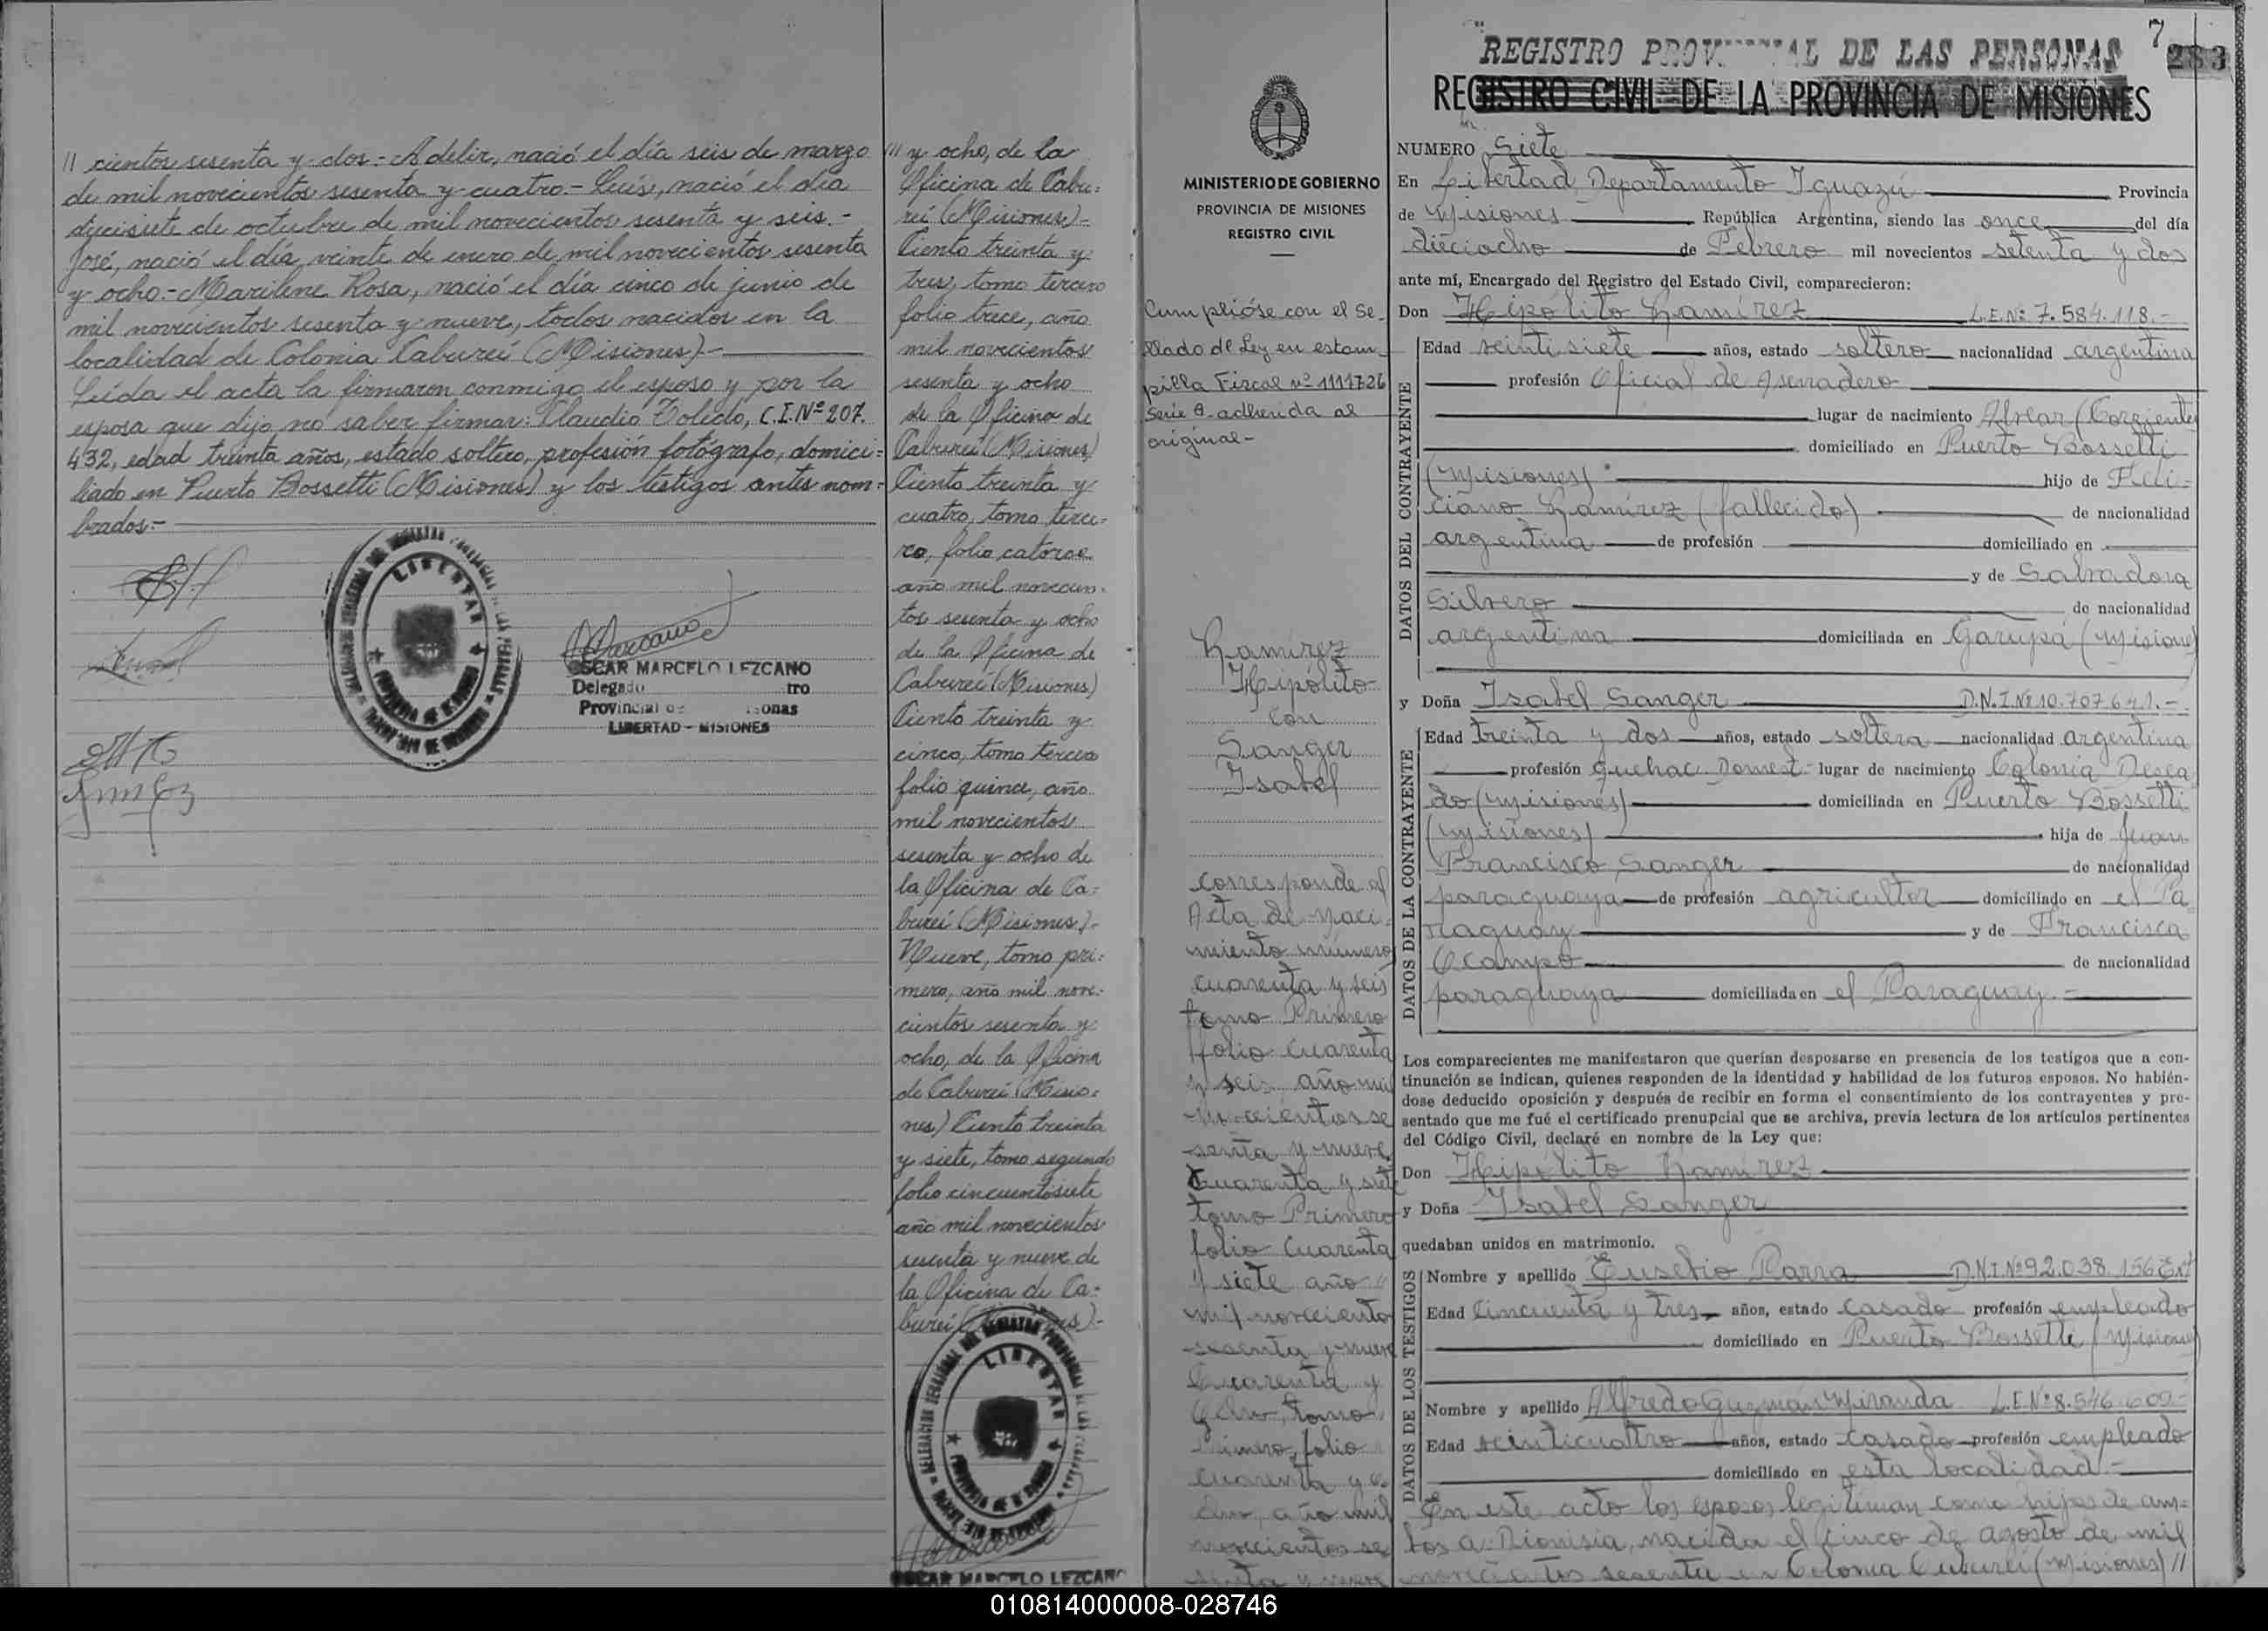 // cientos sesenta y dos.- Adelir, nació el día seis de marzo
de mil novecientos sesenta y cuatro.- Luis, nació el día
diecisiete de octubre de mil novecientos sesenta y seis.-
José, nació el día veinte de enero de mil novecientos sesenta
y ocho.- Marilene Rosa, nació el día cinco de junio de
mil novecientos sesenta y nueve, todos nacidos en la
localidad de Colonia Caburei (Misiones).-
Leída el acta la firmaron conmigo el esposo y por la
esposa que dijo no saber firmar: Claudio Toledo, C.I.Nº 207.
432, edad treinta años, estado soltero, profesión fotógrafo, domici=
liado en Puerto Bossetti (Misiones) y los testigos antes nom=
brados.-
LIBERTAD
OSCAR MARCELO LEZCANO
Delegado tro
Provincial onas
LIBERTAD - MISIONES
/// y ocho, de la
Oficina de Cabu=
rei (Misiones)-
Ciento treinta y
tres, tomo tercero
folio trece, año
mil novecientos
sesenta y ocho
de la Oficina de
Caburei (Misiones)
Ciento treinta y
cuatro, tomo terce=
ro, folio catorce
año mil novecien=
tos sesenta y ocho
de la Oficina de
Caburei (Misiones)
Ciento treinta y
cinco, tomo tercero
folio quince, año
mil novecientos
sesenta y ocho de
la Oficina de Ca=
burei (Misiones)-
Nueve, tomo pri=
mero, año mil nove=
cientos sesenta y
ocho, de la Oficina
de Caburei (Misio=
nes) Ciento treinta
y siete, tomo segundo
folio cincuentisiete
año mil novecientos
sesenta y nueve de
la Oficina de Ca=
burei
LIBERTAD
OSCAR MARCELO LEZCANO
MINISTERIO DE GOBIERNO
PROVINCIA DE MISIONES
REGISTRO CIVIL
Cumplióse con el Se-
llado de Ley en estam-
pilla Fiscal nº 1111726
Serie A- adherida al
original-
Ramírez
Hipólito
con
Sanger
Isabel
corresponde al
Acta de Naci-
miento número
cuarenta y seis
tomo Primero
folio cuarenta
y seis año mil
novecientos se
senta y nueve
Cuarenta y siete
tomo Primero
folio cuarenta
y siete año
mil novecientos
sesenta y nueve
Cuarenta y
ocho, tomo
Primero, folio
cuarenta y o
cho, año mil
novecientos se
senta y nueve
7
283
REGISTRO PROVINCIAL DE LAS PERSONAS
REGISTRO CIVIL DE LA PROVINCIA DE MISIONES
NUMERO Siete
En Libertad, Departamento Iguazú Provincia
de Misiones República Argentina, siendo las once del día
dieciocho de Febrero mil novecientos setenta y dos
ante mí, Encargado del Registro del Estado Civil, comparecieron:
Don Hipólito Ramírez L.E.Nº 7.584.118.-
DATOS DEL CONTRAYENTE
Edad veintisiete años, estado soltero nacionalidad argentina
profesión Oficial de Aserradero
lugar de nacimiento Alvear (Corrientes
domiciliado en Puerto Bossetti
(Misiones) hijo de Feli-
ciano Ramírez (fallecido) de nacionalidad
argentina de profesión domiciliado en
y de Salvadora
Silvero de nacionalidad
argentina domiciliada en Garupá (Misiones)
y Doña Isabel Sanger D.N.I.Nº 10.707.641.-
DATOS DE LA CONTRAYENTE
Edad treinta y dos años, estado soltera nacionalidad argentina
profesión Quehac. Domest.- lugar de nacimiento Colonia Desea
do (Misiones) domiciliada en Puerto Bossetti
(Misiones) hija de Juan
Francisco Sanger de nacionalidad
paraguaya de profesión agricultor domiciliado en el Pa
raguay y de Francisca
Ocampo de nacionalidad
paraguaya domiciliada en el Paraguay.-
Los comparecientes me manifestaron que querían desposarse en presencia de los testigos que a con-
tinuación se indican, quienes responden de la identidad y habilidad de los futuros esposos. No habién-
dose deducido oposición y después de recibir en forma el consentimiento de los contrayentes y pre-
sentado que me fué el certificado prenupcial que se archiva, previa lectura de los artículos pertinentes
del Código Civil, declaré en nombre de la Ley que:
Don Hipólito Ramírez
y Doña Isabel Sanger
quedaban unidos en matrimonio.
DATOS DE LOS TESTIGOS
Nombre y apellido Eusebio Parra D.N.I.Nº 92.038.156 Ext
Edad Cincuenta y tres años, estado casado profesión empleado
domiciliado en Puerto Bossetti (Misiones)
Nombre y apellido Alfredo Guzmán Miranda L.E.Nº 8.546.609-
Edad veinticuatro años, estado casado profesión empleado
domiciliado en esta localidad.-
En este acto los esposos legitiman como hijos de am=
bos a: Dionisia, nacida el cinco de agosto de mil
novecientos sesenta en Colonia Caburei (Misiones) //
010814000008-028746